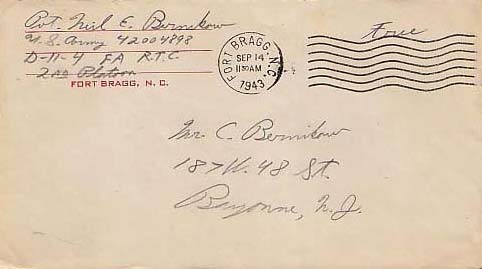 Pvt. Neil E. Bernikow
U.S. Army 42004898
D-11-4 FA R.T.C
2nd Platoon
FORT BRAGG, N. C.
FORT BRAGG. N.C.
SEP 14
11 30 AM
1943
Free
Mr. C. Bernikow
187 W. 48 St.
Bayonne, N.J.